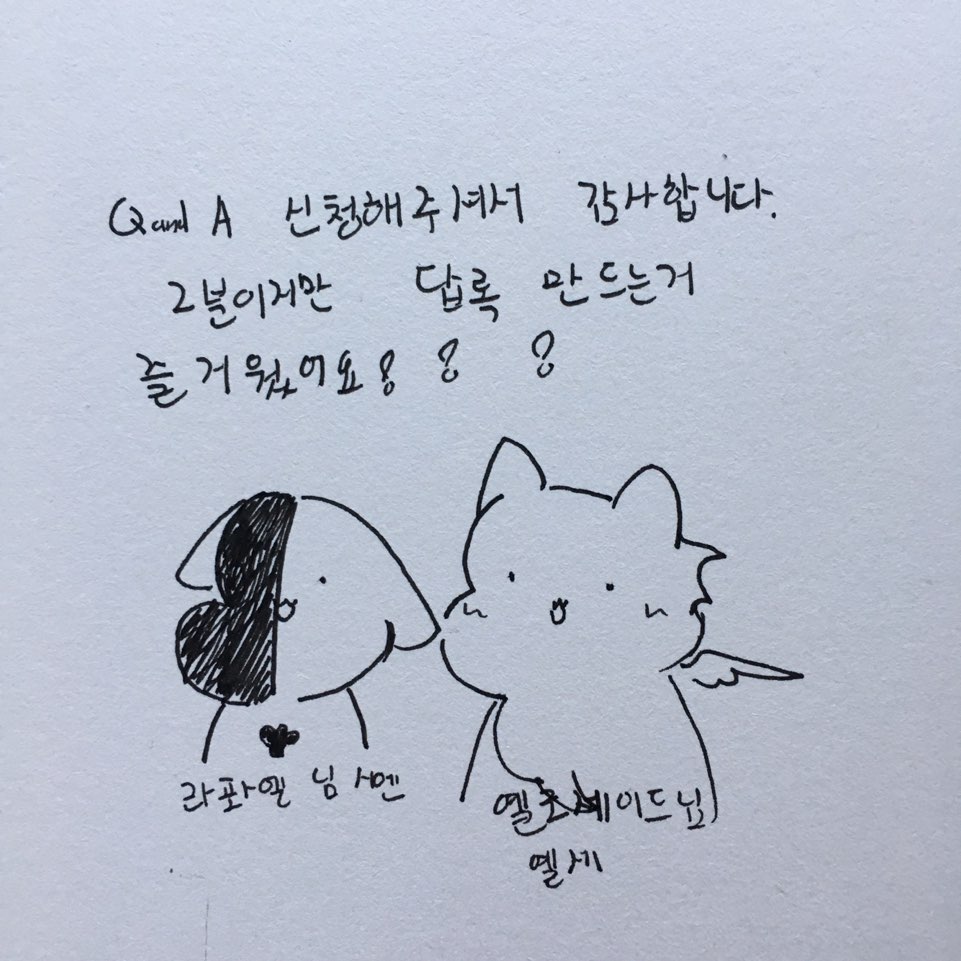 Q and A 신청해주셔서 감사합니다.
2분이지만 답록 만드는거
즐거웠어요! ! !
라파엘 님 시엔
옐로
옐세